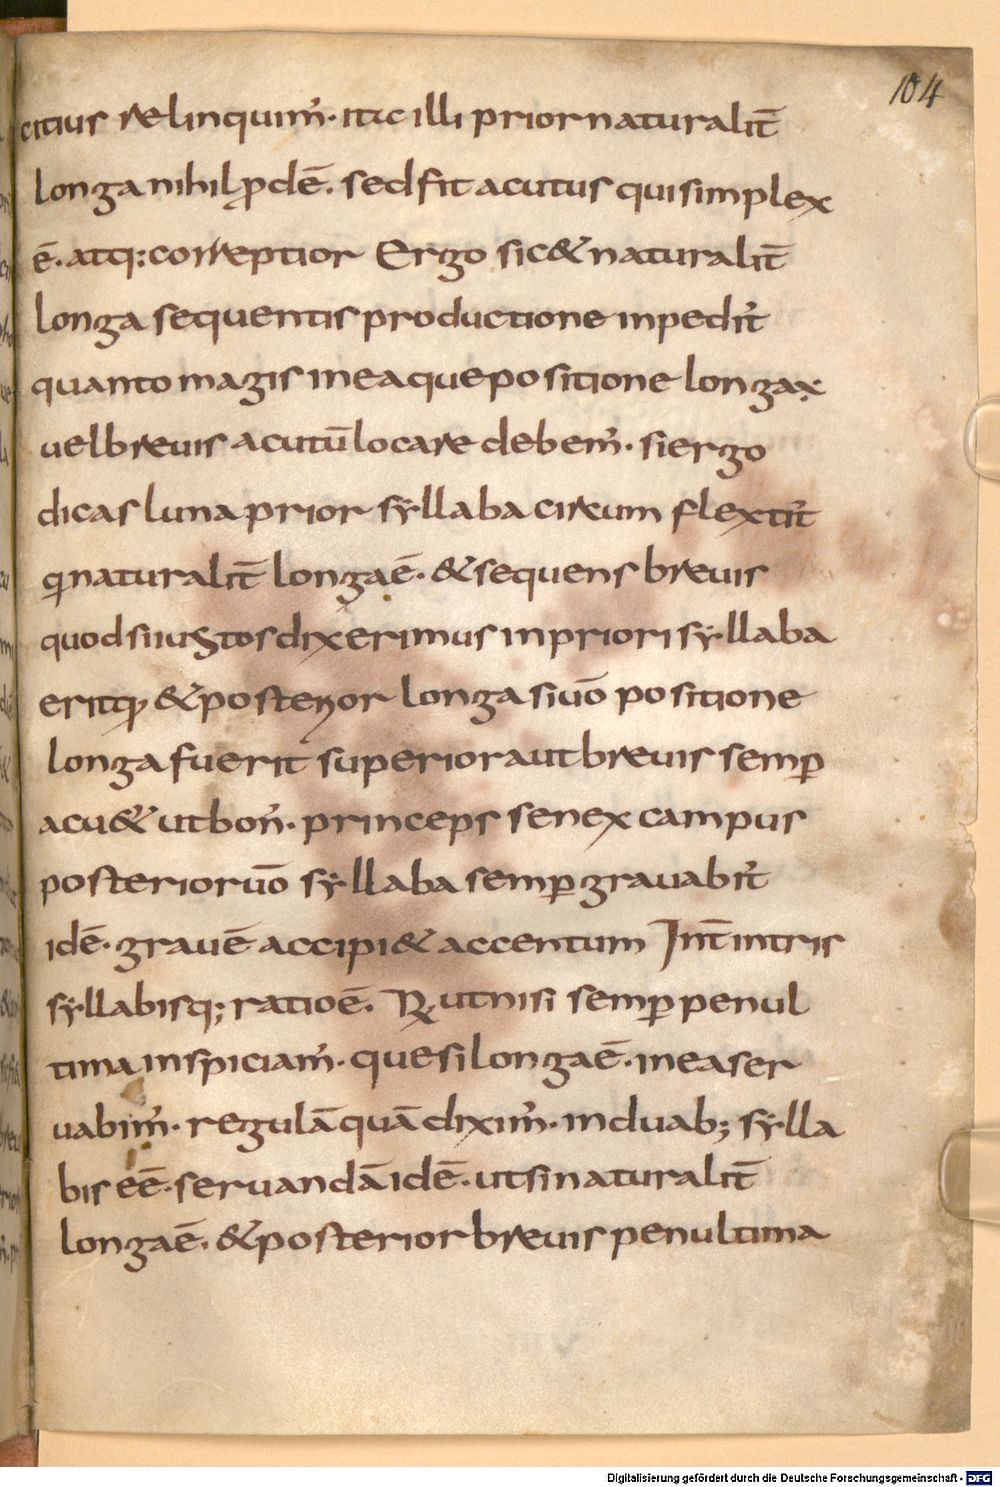 104
citius relinquim̓. itac illi prior naturalit̄
longa nihil ꝓdē. sed fit acutus qui simplex
ē. atq: correptior Ergo sic & naturalit̄
longa sequentis productione inpedit̓
quanto magis in ea que positione longa x
uel breuis acutū locare debem̓. si ergo
dicas luna prior syllaba circum flextit̓
q naturalit̄ longa ē. & sequens breuis
quod si iustos dixerimus in priori syllaba
erit & posterior longa si uō positione
longa fuerit superior aut breuis semꝑ
acu& ut bon̓. princeps senex campus
posterior uō syllaba semꝑ grauabit̓
idē. grauē accipi& accentum Int̄ in tris
syllabisq; ratio ē. ut nisi semꝑ penul
tima inspiciam̓. que si longa ē. in ea ser
uabim̓. regulā quā dixim̓. in duab; sylla
bis eē. seruandā idē. ut si naturalit̄
longa ē. & posterior breuis penultima
Digitalisierung gefördert durch die Deutsche Forschungsgemeinschaft - DFG